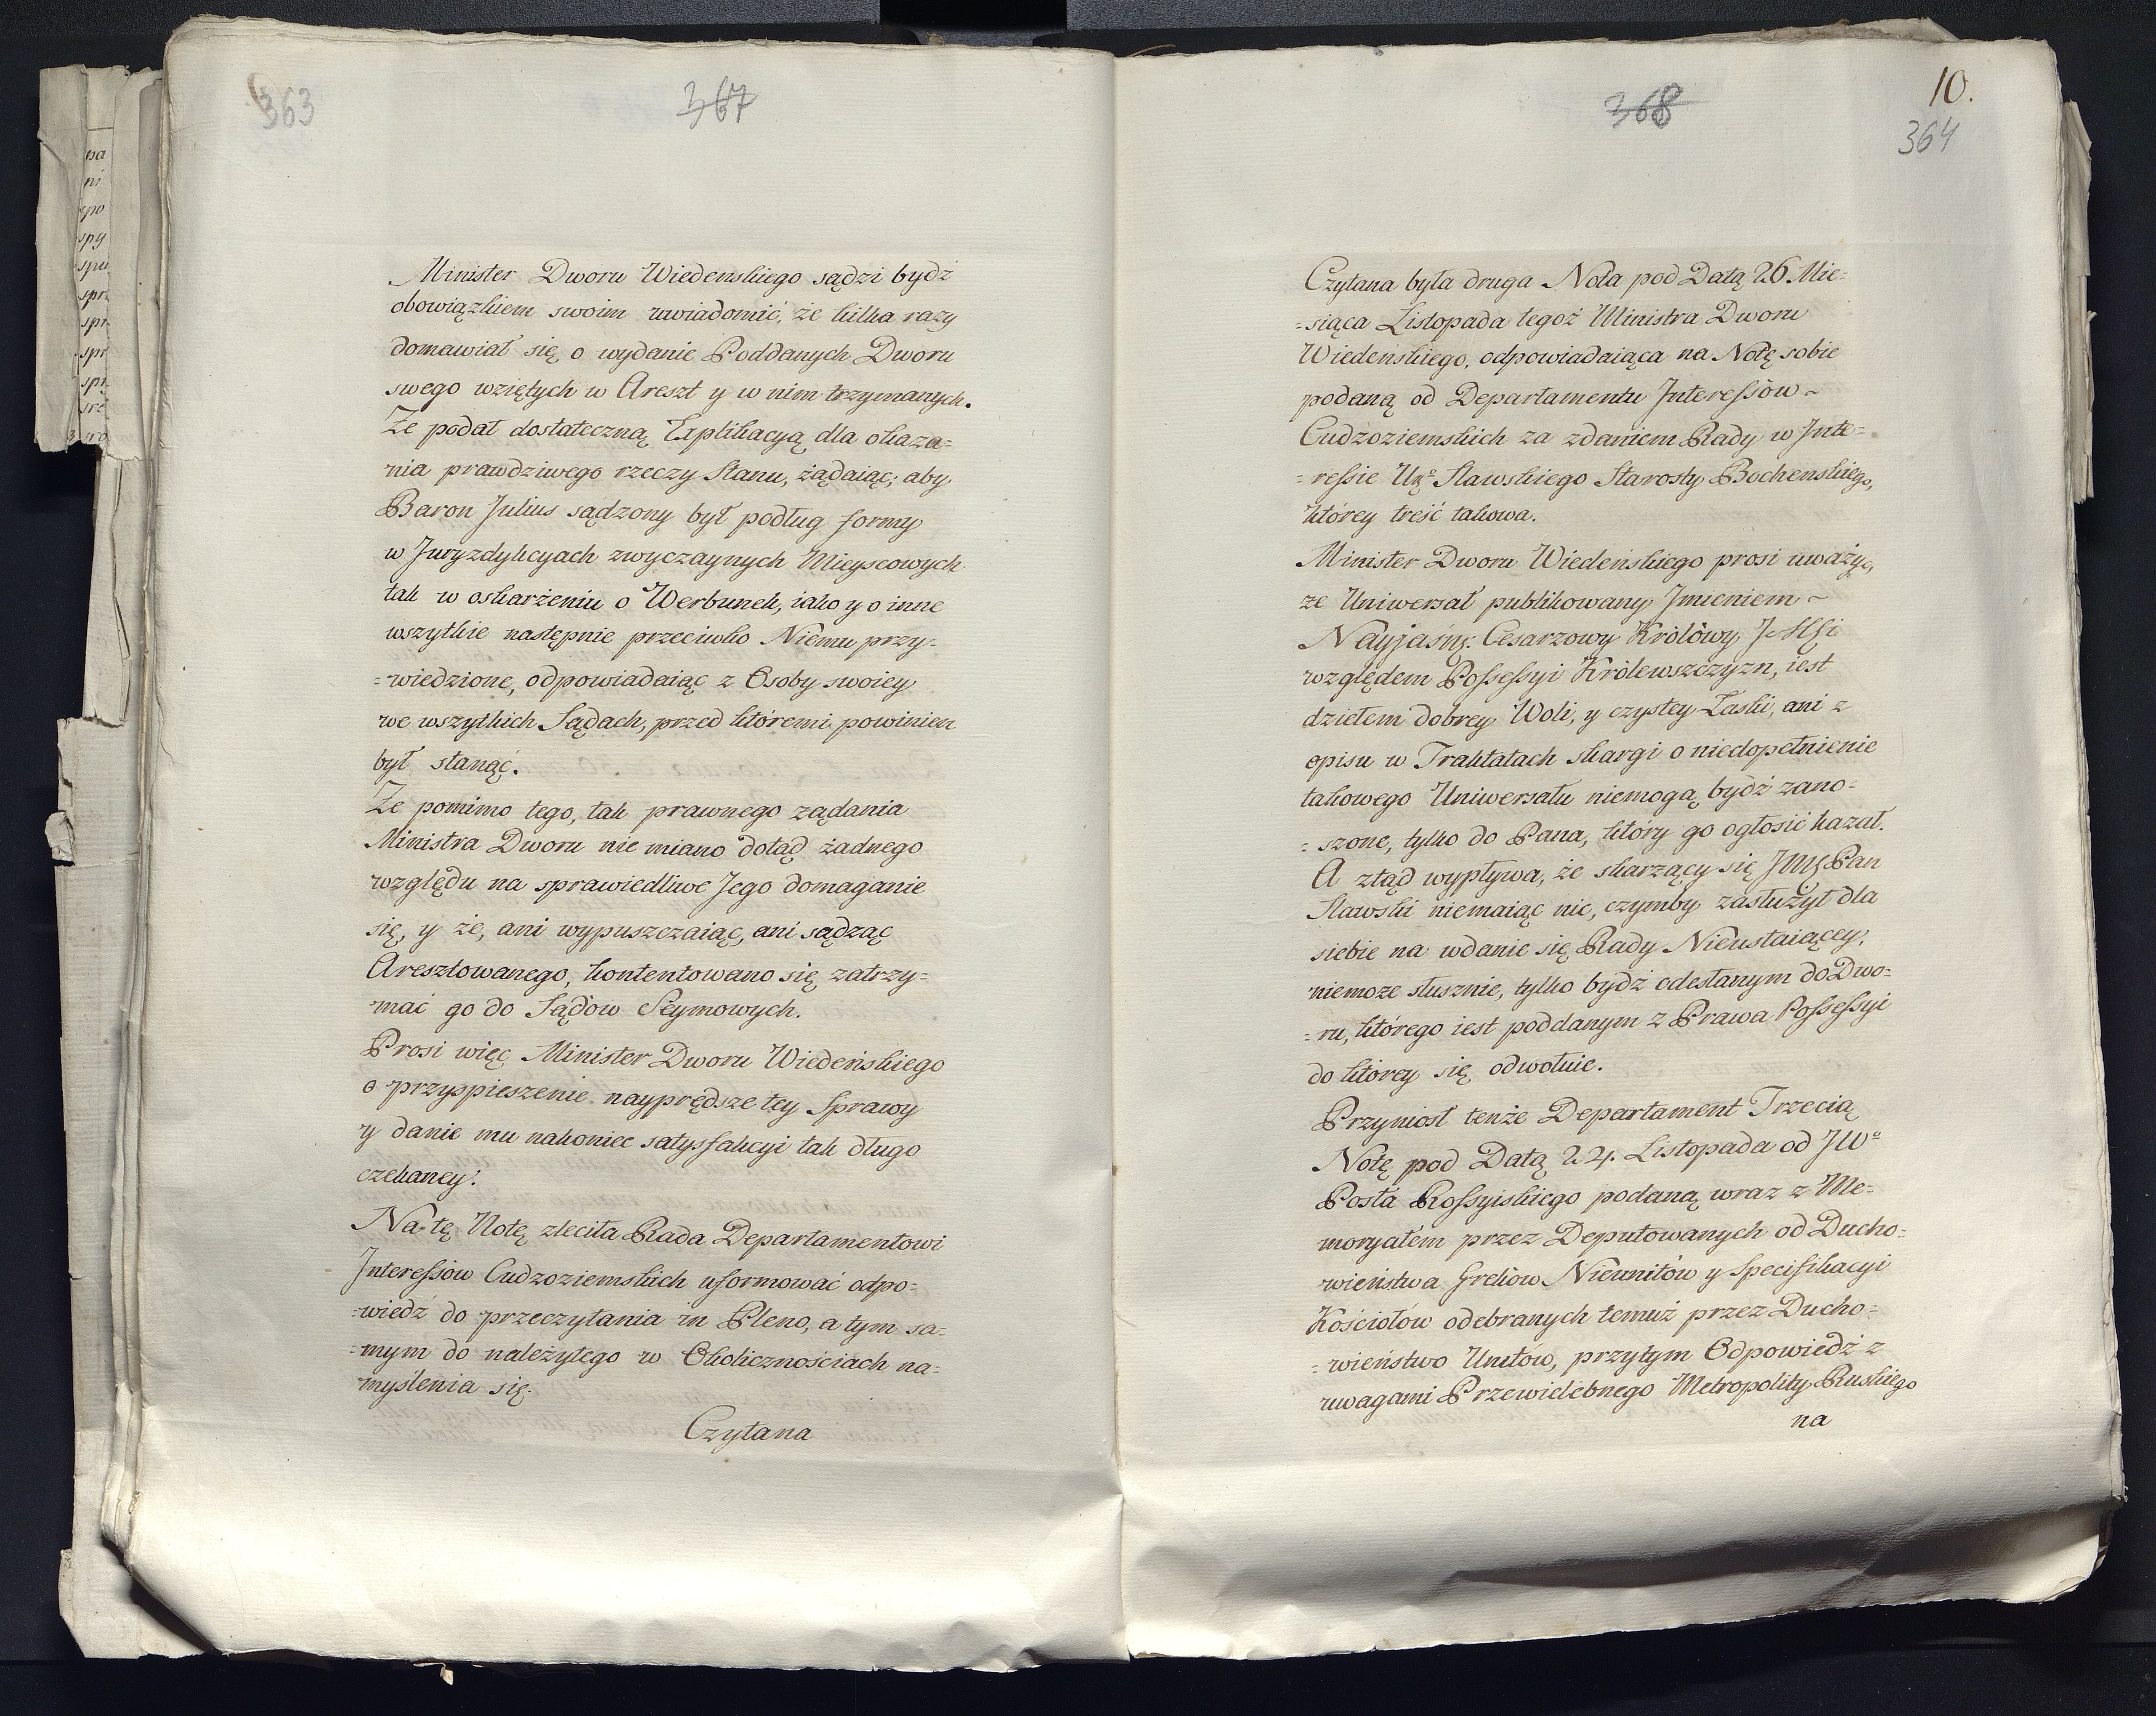 363
367
Minister Dworu Wiedenskiego sądzi bydź
obowiązkiem swoim uwiadomić, że kilka razy
domawiał się o wydanie Poddanych Dworu
swego wziętych w Areszt y w nim trzymanych.
Ze podał dostateczną Explikacyą dla okaza=
nia prawdziwego rzeczy Stanu, żądaiąc; aby
Baron Julius sądzony był podług formy
w Juryzdykcyach zwyczaynych Mieyscowych
tak w oskarżeniu o Werbunek, iako y o inne
wszytkie następnie przeciwko Niemu przy=
=wiedzione, odpowiadaiąc z Osoby swoiey
we wszytkich Sądach, przed któremi powinien
był stanąć.
Ze pomimo tego, tak prawnego ządania
Ministra Dworu nie miano dotąd żadnego
względu na sprawiedliwe Jego domaganie
się, y że, ani wypuszczaiąc, ani sądząc
Aresztowanego, kontentowano się zatrzy=
mać go do Sądow Seymowych.
Prosi więc Minister Dworu Wiedeńskiego
o przyspieszenie nayprędsze tey Sprawy
y danie mu nakoniec satysfakcyi tak długo
czekaney.
Na tę Notę zleciła Rada Departamentowi
Interessow Cudzoziemskich uformować odpo=
=wiedź do przeczytania in Pleno, a tym sa=
=mym do należytego w Okolicznościach na=
myślenia się.
Czytana
368
10.
364
Czytana była druga Nota pod Datą 26. Mie=
=siąca Listopada tegoż Ministra Dworu
Wiedeńskiego, odpowiadaiąca na Notę sobie
podaną od Departamentu Interessów ~
Cudzoziemskich za zdaniem Rady w Inte=
=ressie Urº Sławskiego Starosty Bochenskiego,
którey treść takowa.
Minister Dworu Wiedeńskiego prosi uważyc,
ze Uniwersał publikowany Imieniem ~
Nayjaśny: Cesarzowy Królowy
względem Possessyi Królewszczyzn, iest
dziełem dobrey Woli, y czystey Łaski, ani z
opisu w Traktatach skargi o niedopełnienie
takowego Uniwersału niemogą bydź zano=
=szone, tylko do Pana, który go ogłosić kazał.
A ztąd wypływa, że skarzący się Pan
Sławski niemaiąc nic, czymby zasłużył dla
siebie na wdanie się Rady Nieustaiącey,
niemoze słusznie, tylko bydź odesłanym do Dwo=
=ru, którego iest poddanym z Prawa Possessyi
do którey się odwołuie.
Przyniosł tenże Departament Trzecią
Notę pod Datą 24. Listopada od JWº
Posła Rossyiskiego podaną wraz z Me=
moryałem przez Deputowanych od Ducho=
wieństwa Greków Nieunitów y Specifikacyi
Kościołów odebranych temuż przez Ducho=
=wieństwo Unitow, przytym Odpowiedź z
uwagami Przewielebnego Metropolity Ruskiego
na